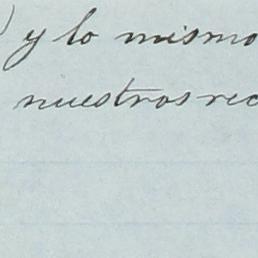 ) y lo mismo
nuestros rec